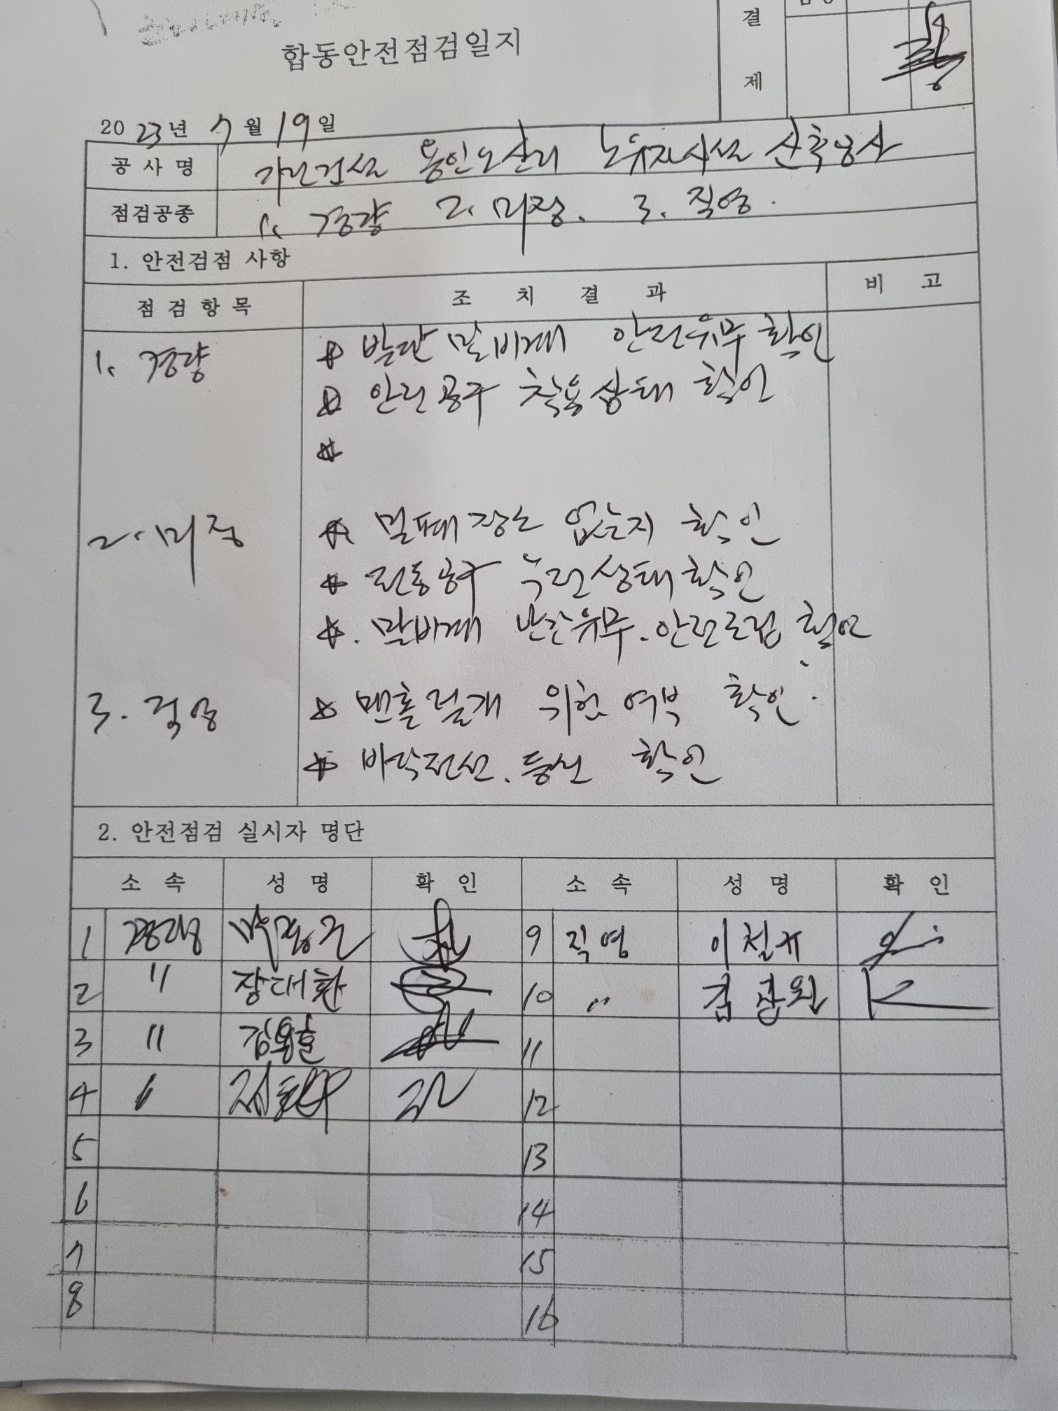 합동안전점검일지
결
제
2023년 7월 19일
공사명 가닌건설 용인오산리 노유자시설 신축공사
점검공종 1. 경량 2. 미장. 3. 직영.
1. 안전검점 사항
점검항목 조치결과 비고
1. 경량 발판 말비계 안전유무 확인
안전공구 착용상태 확인
2. 미장 자는 없는지 확인
전동공구 누전상태 확인
말비계 난간유무. 안전로립 확인
3. 직영 맨홀덮개 위험 여부 확인.
바닥전선. 등선 확인
2. 안전점검 실시자 명단
소속 성명 확인 소속 성명 확인
1 경량 9 직영 이철규
2 〃 장대환 10 〃
3 〃 김용호 11
4 12
5 13
6 14
7 15
8 16